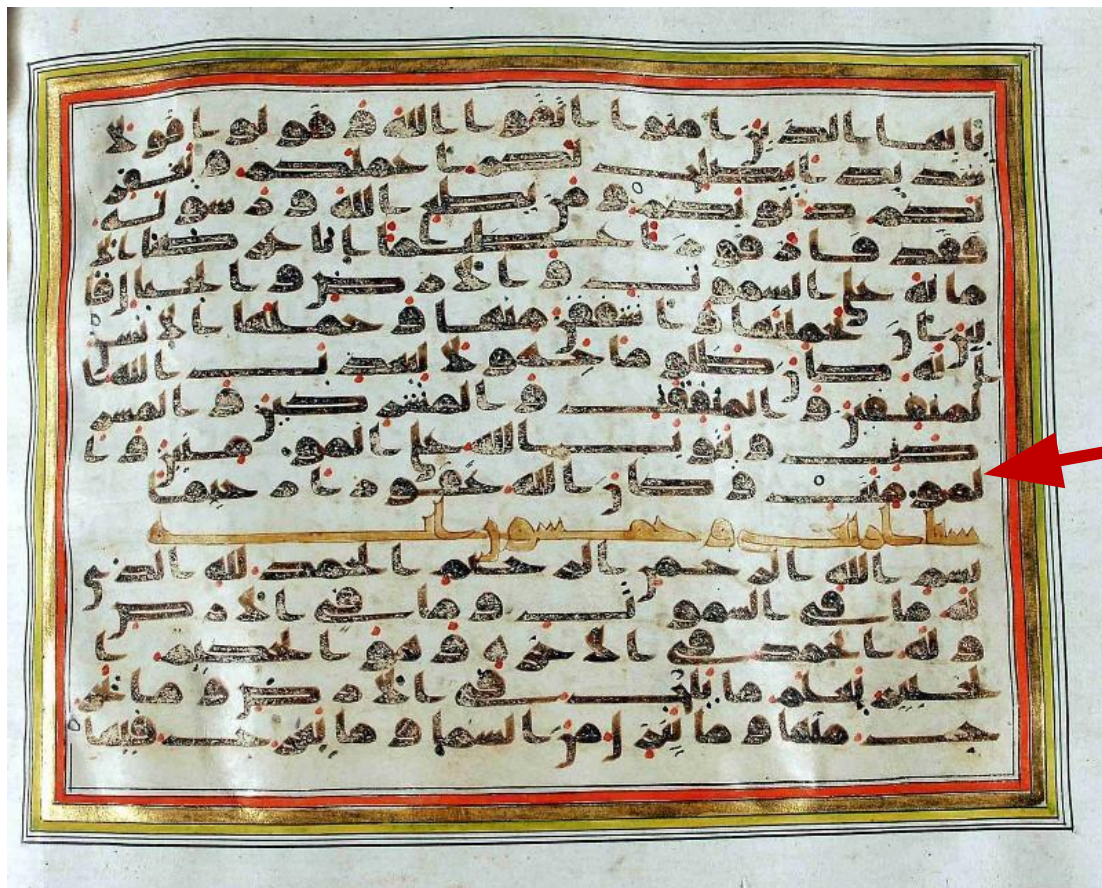 يايها الذين امنوا اتقوا الله و قولوا قولا
سديدا يصلح لكم اعملكم و يغفر
لكم ذنوبكم و من يطع الله و رسوله
فقد فاز فوزا عظيما انا عرضنا الا
مانة على السموت و الارض و الجبال فا
بين ان يحملنها و اشفقن منها و حملها الانسن
انه كان ظلوما جهولا ليعذب الله ا
لمنفقين و المنفقت و المشركين و المشر
كت و يتوب الله على المومنين و ا
لمومنت و كان الله غفورا رحيما
سبا و خمسون اية
بسم الله الرحمن الرحيم الحمد لله الذي
له ما في السموت و ما في الارض
و له الحمد في الاخرة و هو الحكيم ا
لخبير يعلم ما يلج في الارض و ما يخر
ج منها و ما ينزل من السما و ما يعرج فيها